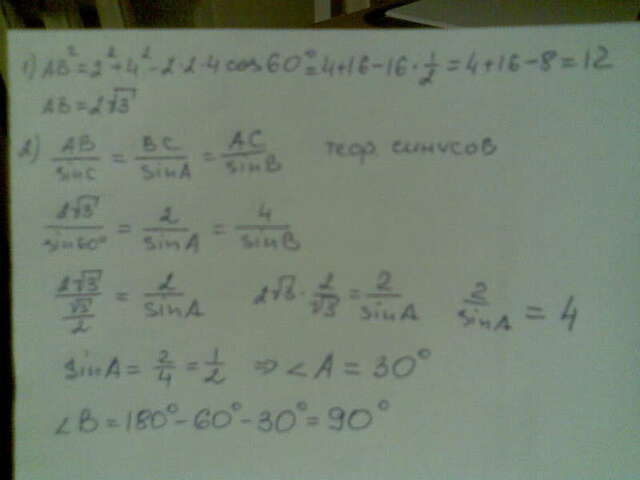 1) AB² = 2² + 4² - 2·2·4 cos 60° = 4+16-16·1/2 = 4+16-8 = 12
AB = 2√3
2) AB/sinC = BC/sinA = AC/sinB теор. синусов
2√3/sin60° = 2/sinA = 4/sinB
2√3/(√3/2) = 2/sinA 2√3·2/√3 = 2/sinA 2/sinA = 4
sinA = 2/4 = 1/2 ⇒ ∠A = 30°
∠B = 180° - 60° - 30° = 90°